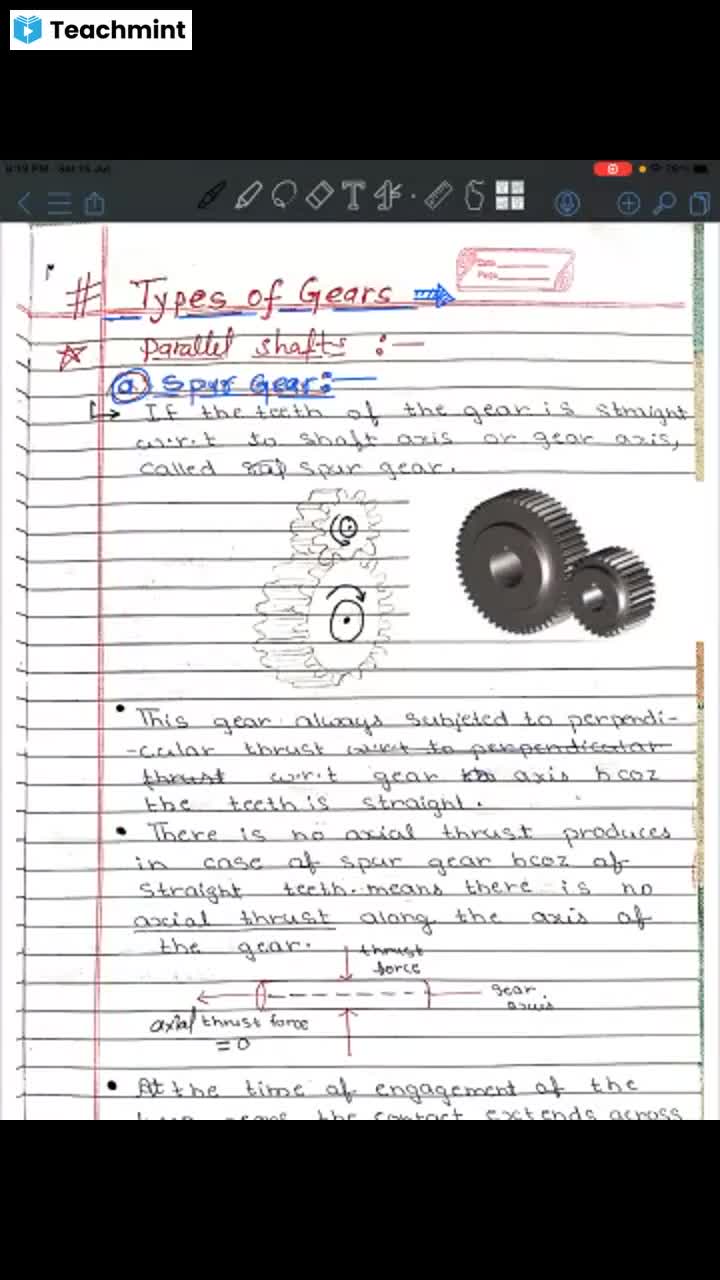 Teachmint
# Types of Gears
Date
Page
☆ Parallel shafts :—
(a) Spur Gear:—
↳ If the teeth of the gear is straight
w.r.t to shaft axis or gear axis,
called spur gear.
• This gear always subjeted to perpendi-
-cular thrust w.r.t to perpendicular
thrust w.r.t gear axis bcoz
the teeth is straight.
• There is no axial thrust produces
in case of spur gear bcoz of
straight teeth. means there is no
axial thrust along the axis of
the gear.
thrust
force
gear
axis
axial thrust force
= 0
• At the time of engagement of the
the contact extends across